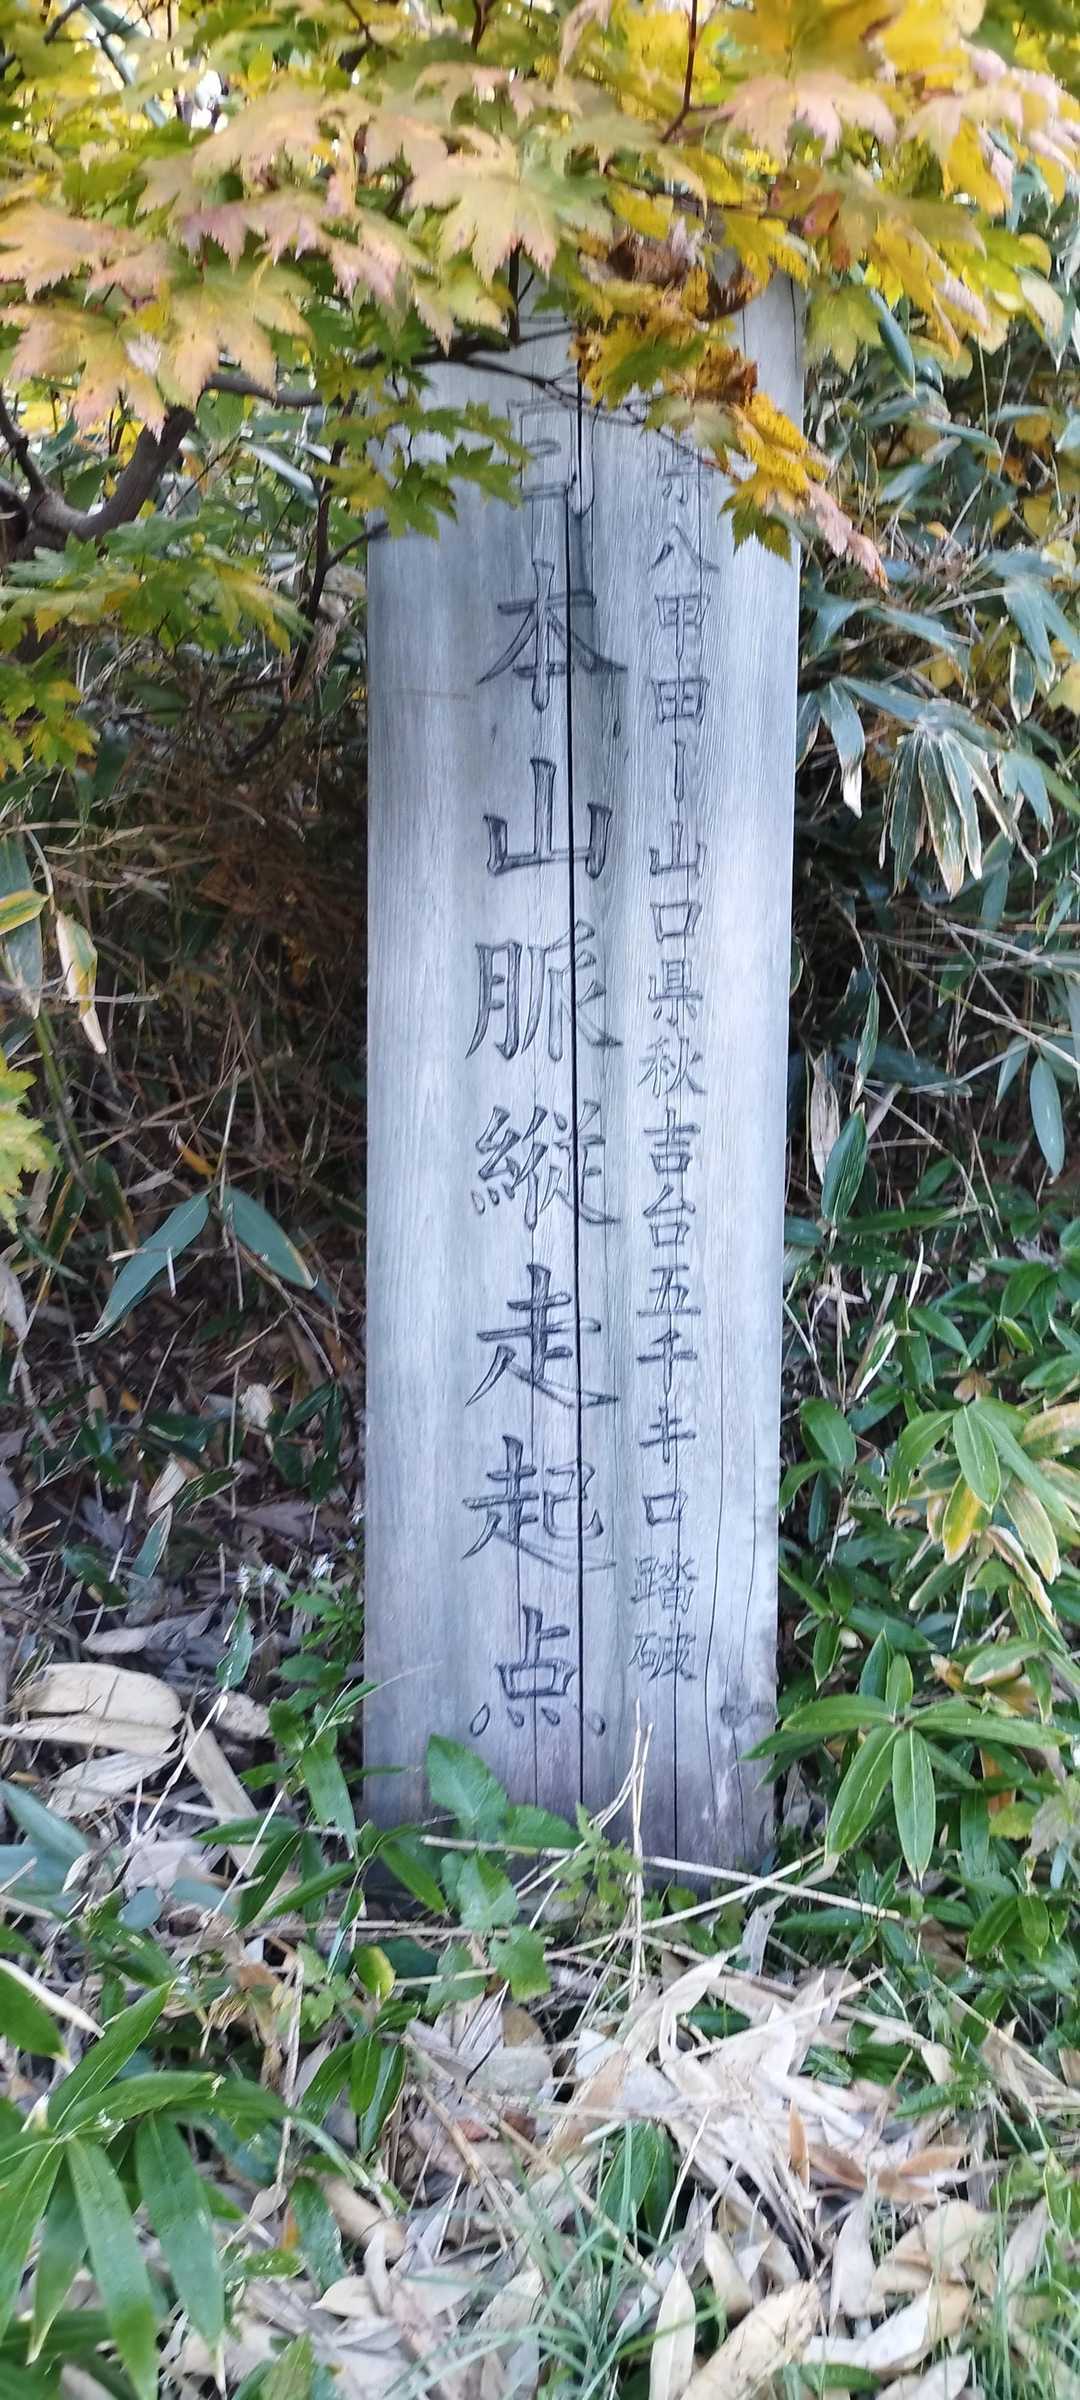 県八甲田ー山口県秋吉台五千キロ踏破
日本山脈縦走起点